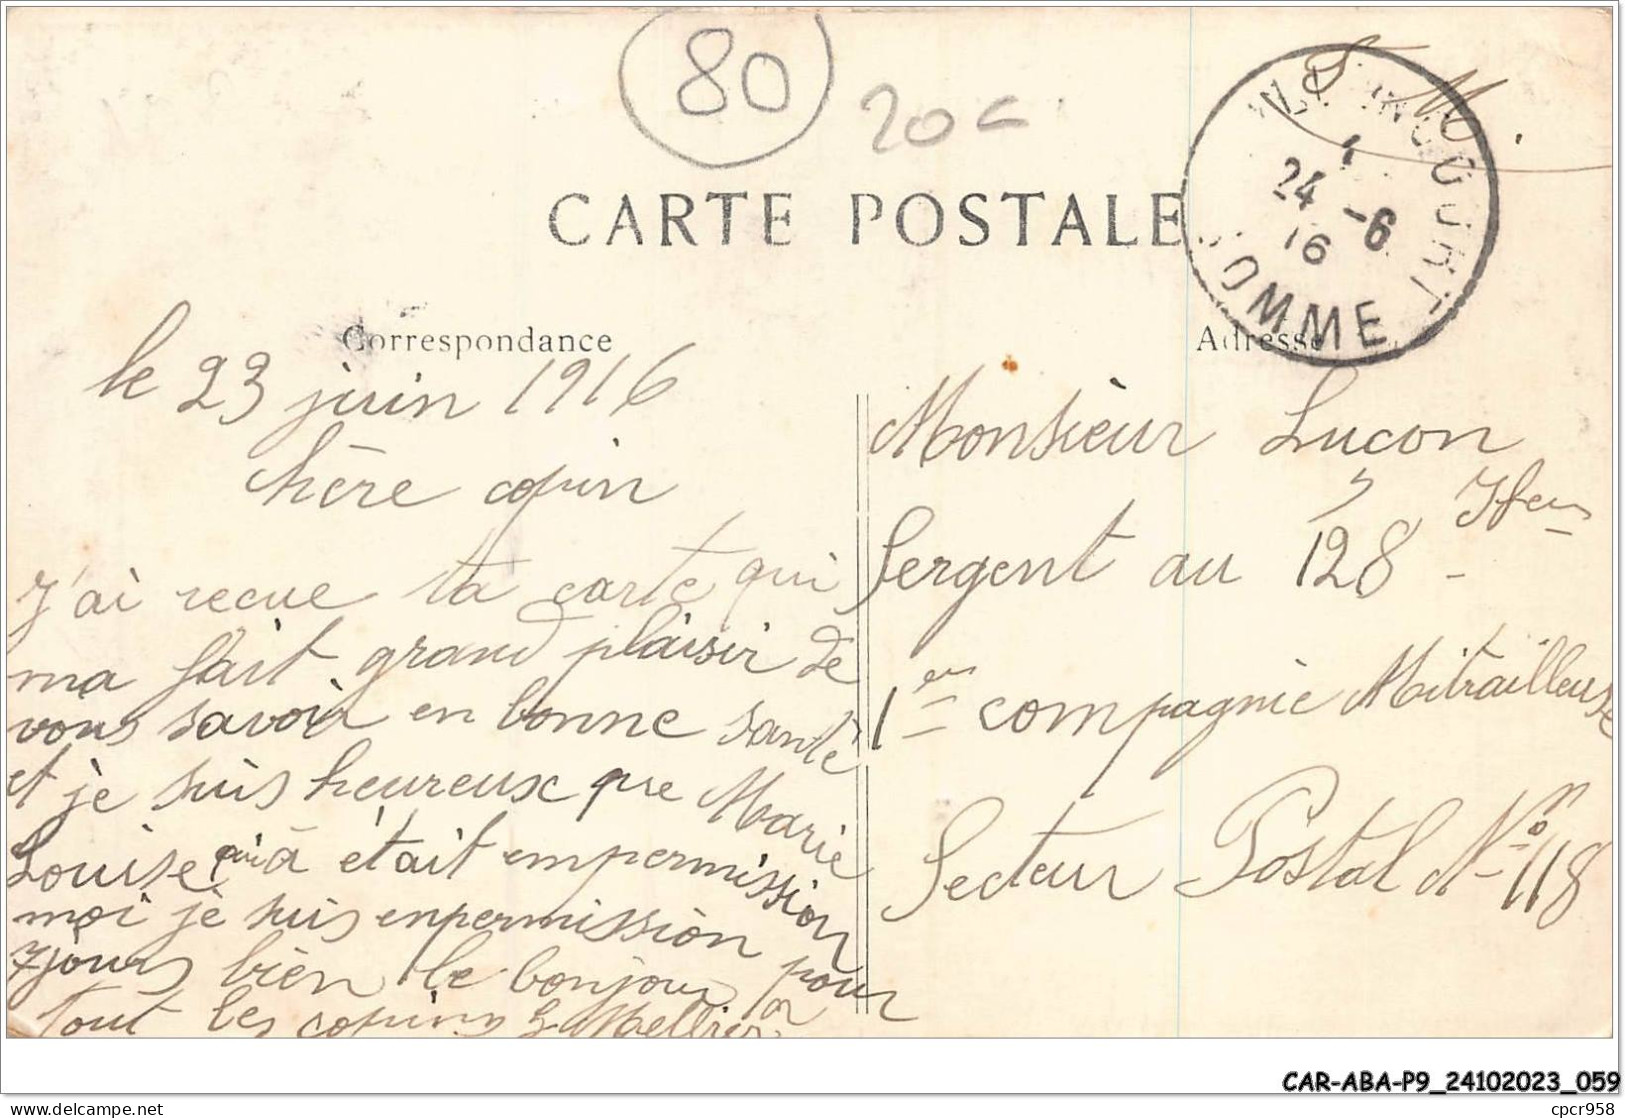 80
20c
F. M.
24 -6
16
SOMME
CARTE POSTALE
Correspondance
Adresse
le 23 juin 1916
chère copin
J'ai recue ta carte qui
ma fait grand plaisir de
vous savoir en bonne santé
et je suis heureux que Marie
Louise qui a était empermission
moi je suis enpermission pour
7 jours bien le bonjour
tout les copins
Monsieur Luçon
Sergent au 128
1ère compagnie Mitrailleuse
Secteur Postal No 118
CAR-ABA-P9_24102023_059
delcampe.net
cpcr958